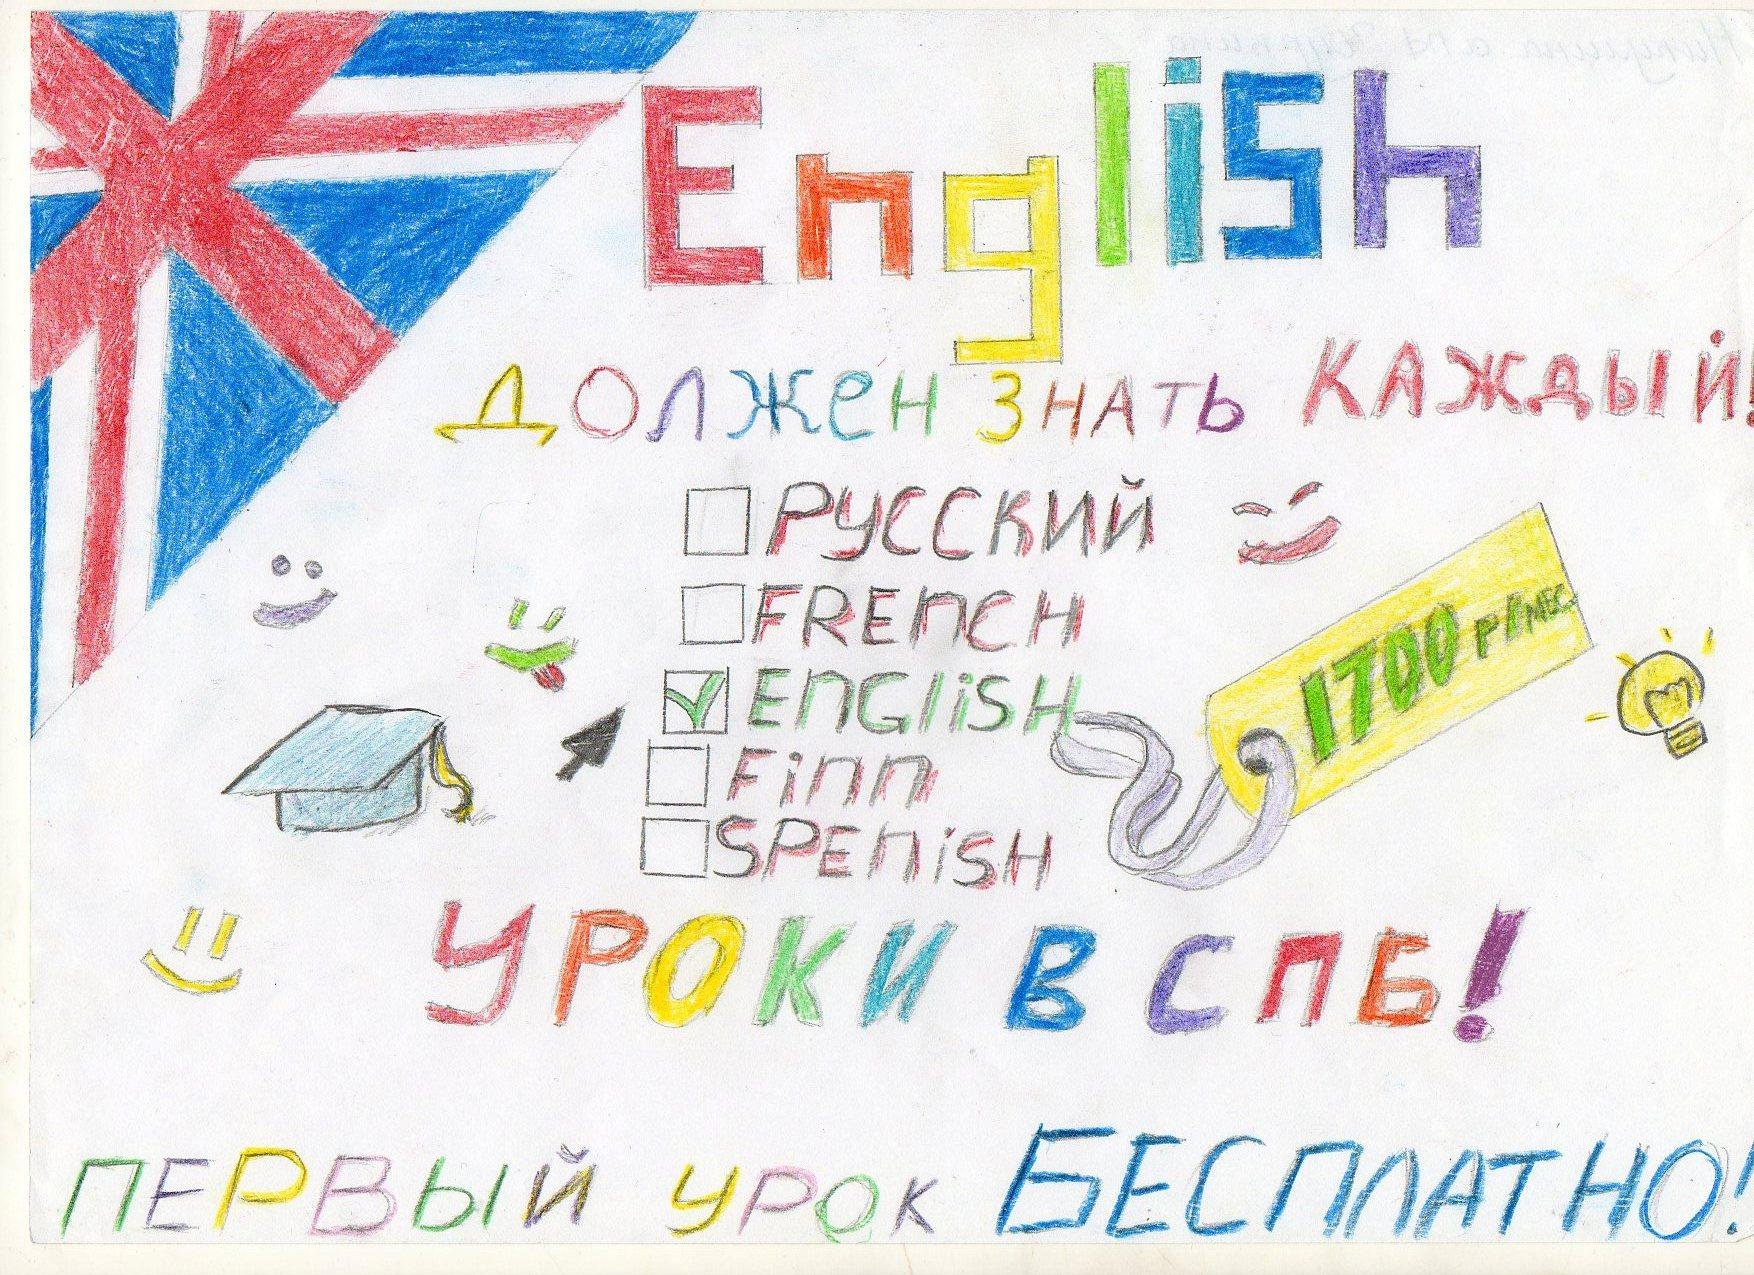 English
ДОЛЖЕН ЗНАТЬ КАЖДЫЙ!
РУССКИЙ
FRENCH
ENGLISH
FINN
SPENISH
1700 Р/МЕС.
УРОКИ В СПБ!
ПЕРВЫЙ УРОК БЕСПЛАТНО!